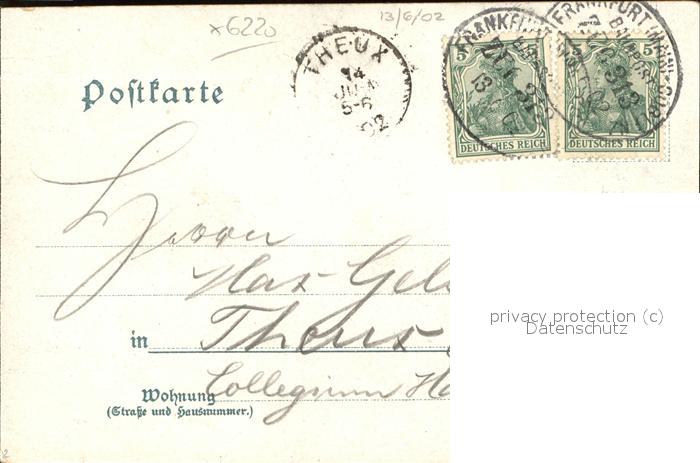 x6220
13/6/02
THEUX
14
5-6
02
FRANKFURT
FRANKFURT (MAIN)
BAHNPOST
ZUG 313
13
5 5 5
DEUTSCHES REICH DEUTSCHES REICH
Postkarte
Herrn
Max
in Theux
Collegium
Wohnung
(Straße und Hausnummer.)
privacy protection (c)
Datenschutz
2